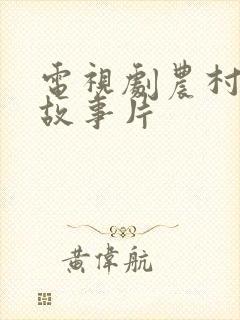 電視劇農村
故事片
黃偉航